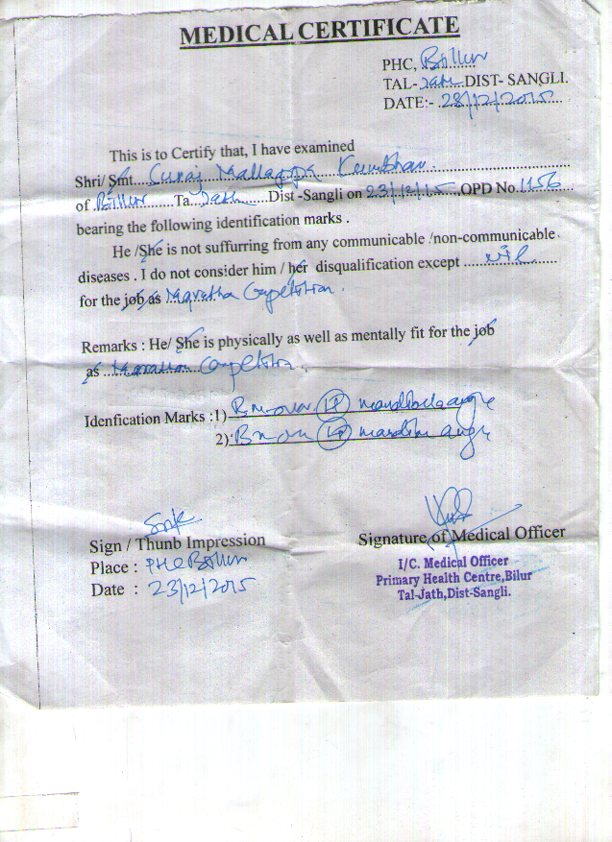 MEDICAL CERTIFICATE
PHC, Billur
TAL- Jath DIST- SANGLI.
DATE:- 28/12/2015
This is to Certify that, I have examined
Shri/ Smt. Suraj Mallappa Kumbhar
of Billur Ta. Jath Dist -Sangli on 23/12/15 ,OPD No. 1156
bearing the following identification marks .
He /She is not suffurring from any communicable /non-communicable
diseases . I do not consider him / her disqualification except nil
for the job as Maratha Competition.
Remarks : He/ She is physically as well as mentally fit for the job
as Competition.
Idenfication Marks :1) angle
2): angle
Sign / Thunb Impression
Signature of Medical Officer
Place : PHC Billur
Date : 23/12/2015
I/C. Medical Officer
Primary Health Centre,Bilur
Tal-Jath,Dist-Sangli.